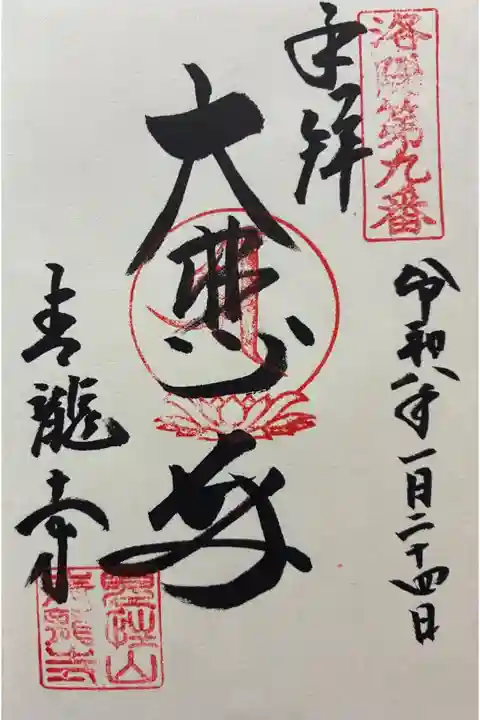 洛陽第九番
奉拝
令和八年一月二十四日
大悲殿
青龍寺
見性山
青龍寺